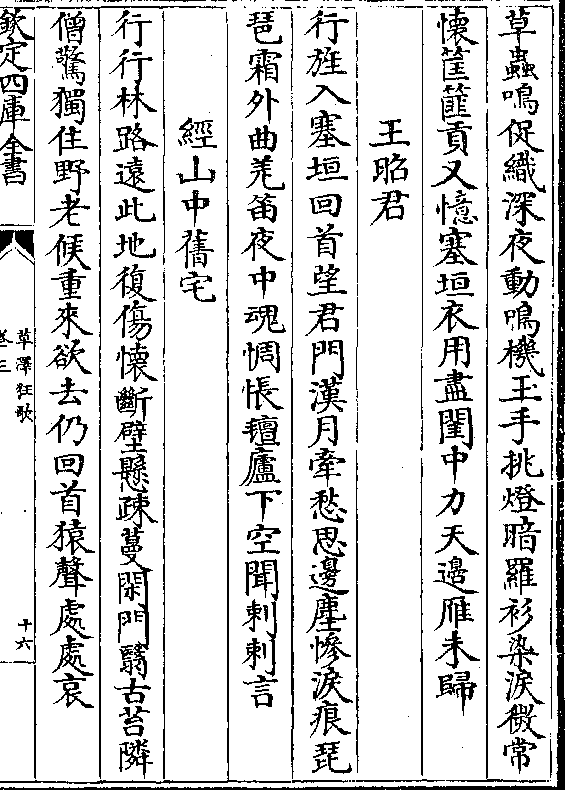 草蟲鳴促織深夜動鳴機玉手挑燈暗羅衫染淚微常
懷筐篚貢又憶塞垣衣用盡閨中力天邊雁未歸
王昭君
行旌入塞垣回首望君門漢月牽愁思邊塵慘淚痕琵
琶霜外曲羌笛夜中魂惆悵氊廬下空聞剌剌言
經山中舊宅
行行林路遠此地復傷懷斷壁懸疎蔓閑門翳古苔隣
僧驚獨住野老候重來欲去仍回首猿聲處處哀
欽定四庫全書
草澤狂歌
卷三
十六